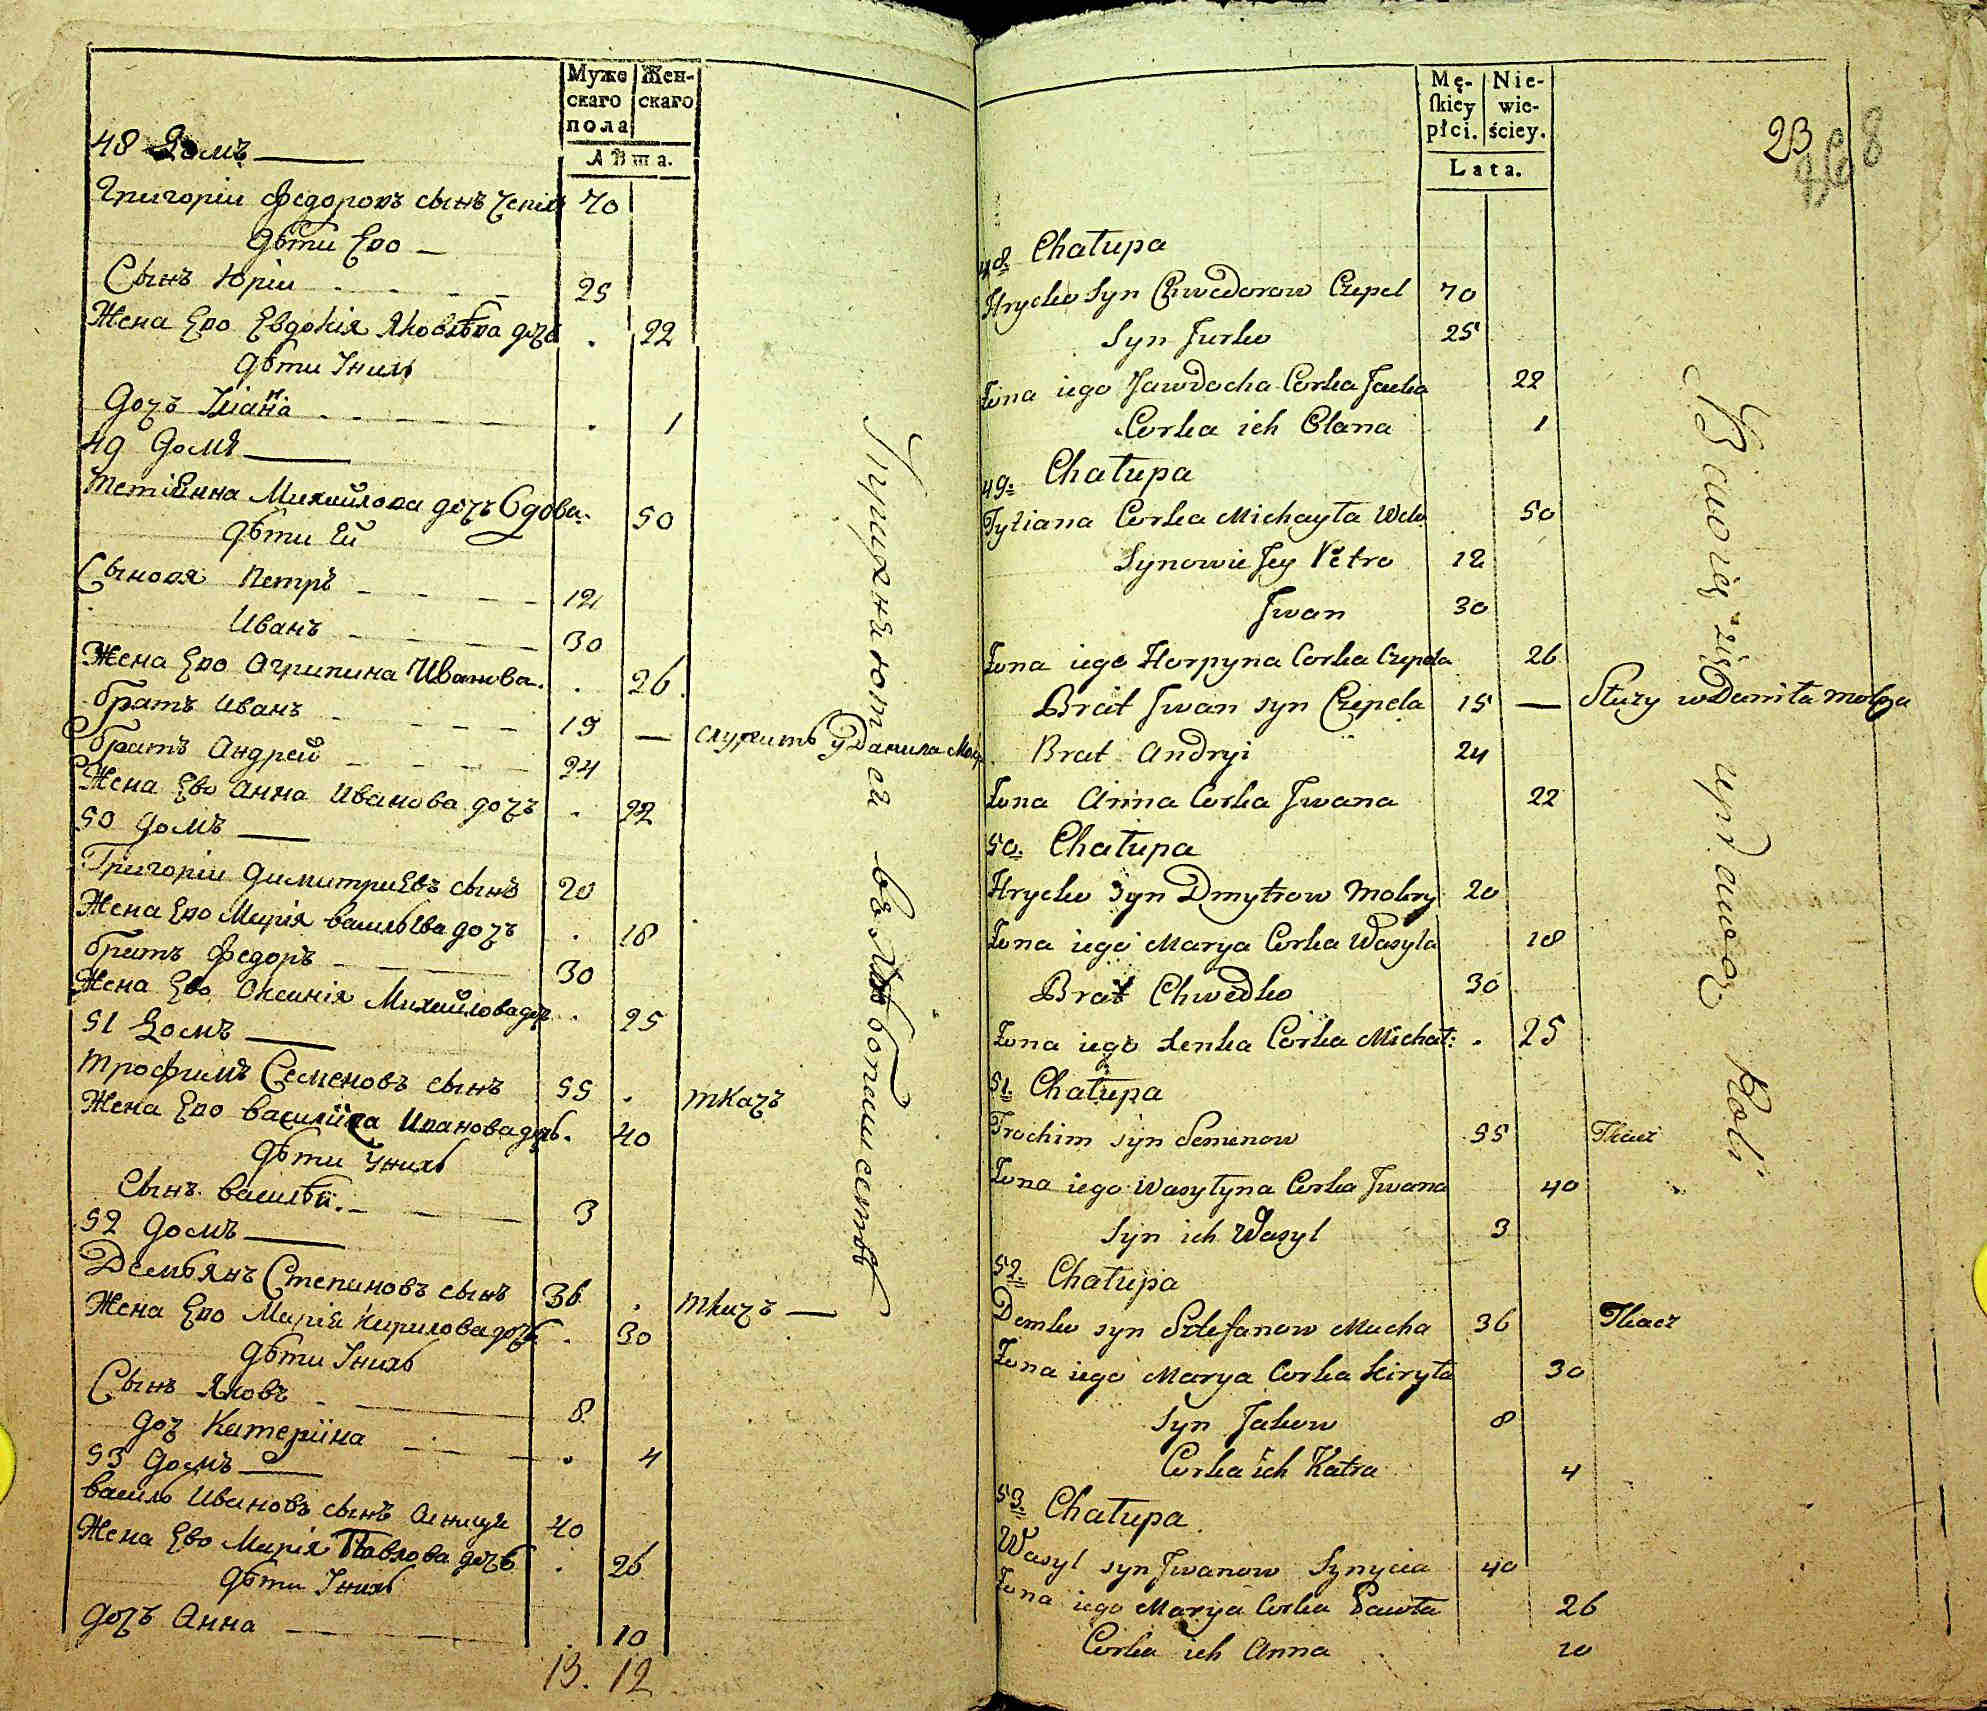 Муже
скаго
пола
Жен-
скаго
Лѣта.
48 Домъ
Григоріи Федоровъ сынъ Чепіль 70
Дѣти Ево
Сынъ Юріи 25
Жена Ево Евдокія Яковлѣва дочь 22
Дѣти Iхниѣ
Дочъ Уліана 1
49 Домъ
Тетіянна Михайлова дочъ Вдова 50
Дѣти Ей
Сыновя Петръ 12
Иванъ 30
Жена Ево Огрипина Иванова 26
братъ Иванъ 15 — служитъ у Данила Мокр
братъ Андрей 24
Жена Ево Анна Иванова дочъ 22
50 Домъ
Григоріи Димитриевъ сынъ 20
Жена Ево Марія Васильева дочъ 18
братъ Федоръ 30
Жена Ево Оксанія Михайлова доч 25
51 Домъ
Трофимъ Семеновъ сынъ 55 ткачъ
Жена Ево Василиса Иванова доч 40
Дѣти
Сынъ Василѣй 3
52 Домъ
Демьянъ Степановъ сынъ 36 ткачъ
Жена Ево Марія Кирилова дочъ 30
Дѣти
Сынъ Яковъ 8
доч Катерiина 4
53 Домъ
Василь Ивановъ сынъ Синиця 40
Жена Ево Марія Павлова дочъ 26
Дѣти
Дочъ Анна 10
13. 12
Упражняются въ хлѣбопашествѣ
Mę-
skiey
płci.
Nie-
wie-
ściey.
Lata.
23
48 Chałupa
Hryćko Syn Chwedorow Czepel 70
Syn Jurko 25
Żona iego Jawdocha Corka Jacka 22
Corka ich Olana 1
49. Chałupa
Tytiana Corka Michayła Wdo 50
Synowie Jey Petro 12
Jwan 30
Żona iego Horpyna Corka Czepela 26
Brat Jwan syn Czepela 15 — Słuzy w Daniła Mokra
Brat Andryi 24
Żona Anna Corka Jwana 22
50. Chałupa
Hryćko Syn Dmytrow Mokry 20
Żona iego Marya Corka Wasyla 18
Brat Chwedko 30
Żona iego Xenka Corka Michał: 25
51. Chałupa
Trochim syn Semenow 55 Tkacz
Żona iego Wasyłyna Corka Jwana 40
Syn ich Wasyl 3
52. Chałupa
Demko syn Sztefanow Mucha 36 Tkacz
Żona iego Marya Corka Kiryła 30
Syn Jakow 8
Corka ich Katra 4
53. Chałupa
Wasyl syn Jwanow Synycia 40
Żona iego Marya Corka Pawła 26
Corka ich Anna 10
Bawią się uprawą Roli